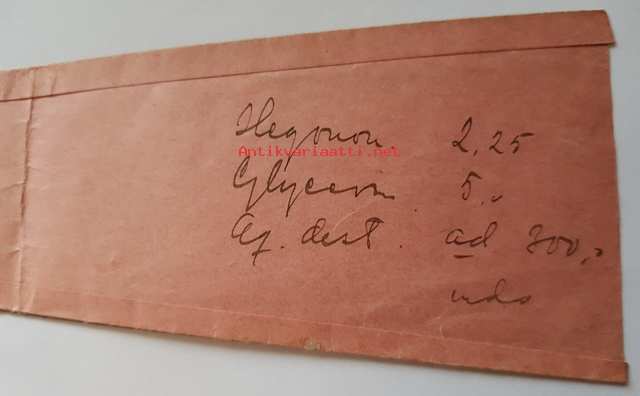 Hegonon. 2,25
Antikvariaatti.net
Glycerin. 5,.
Aq. dest. ad 300,.
mds